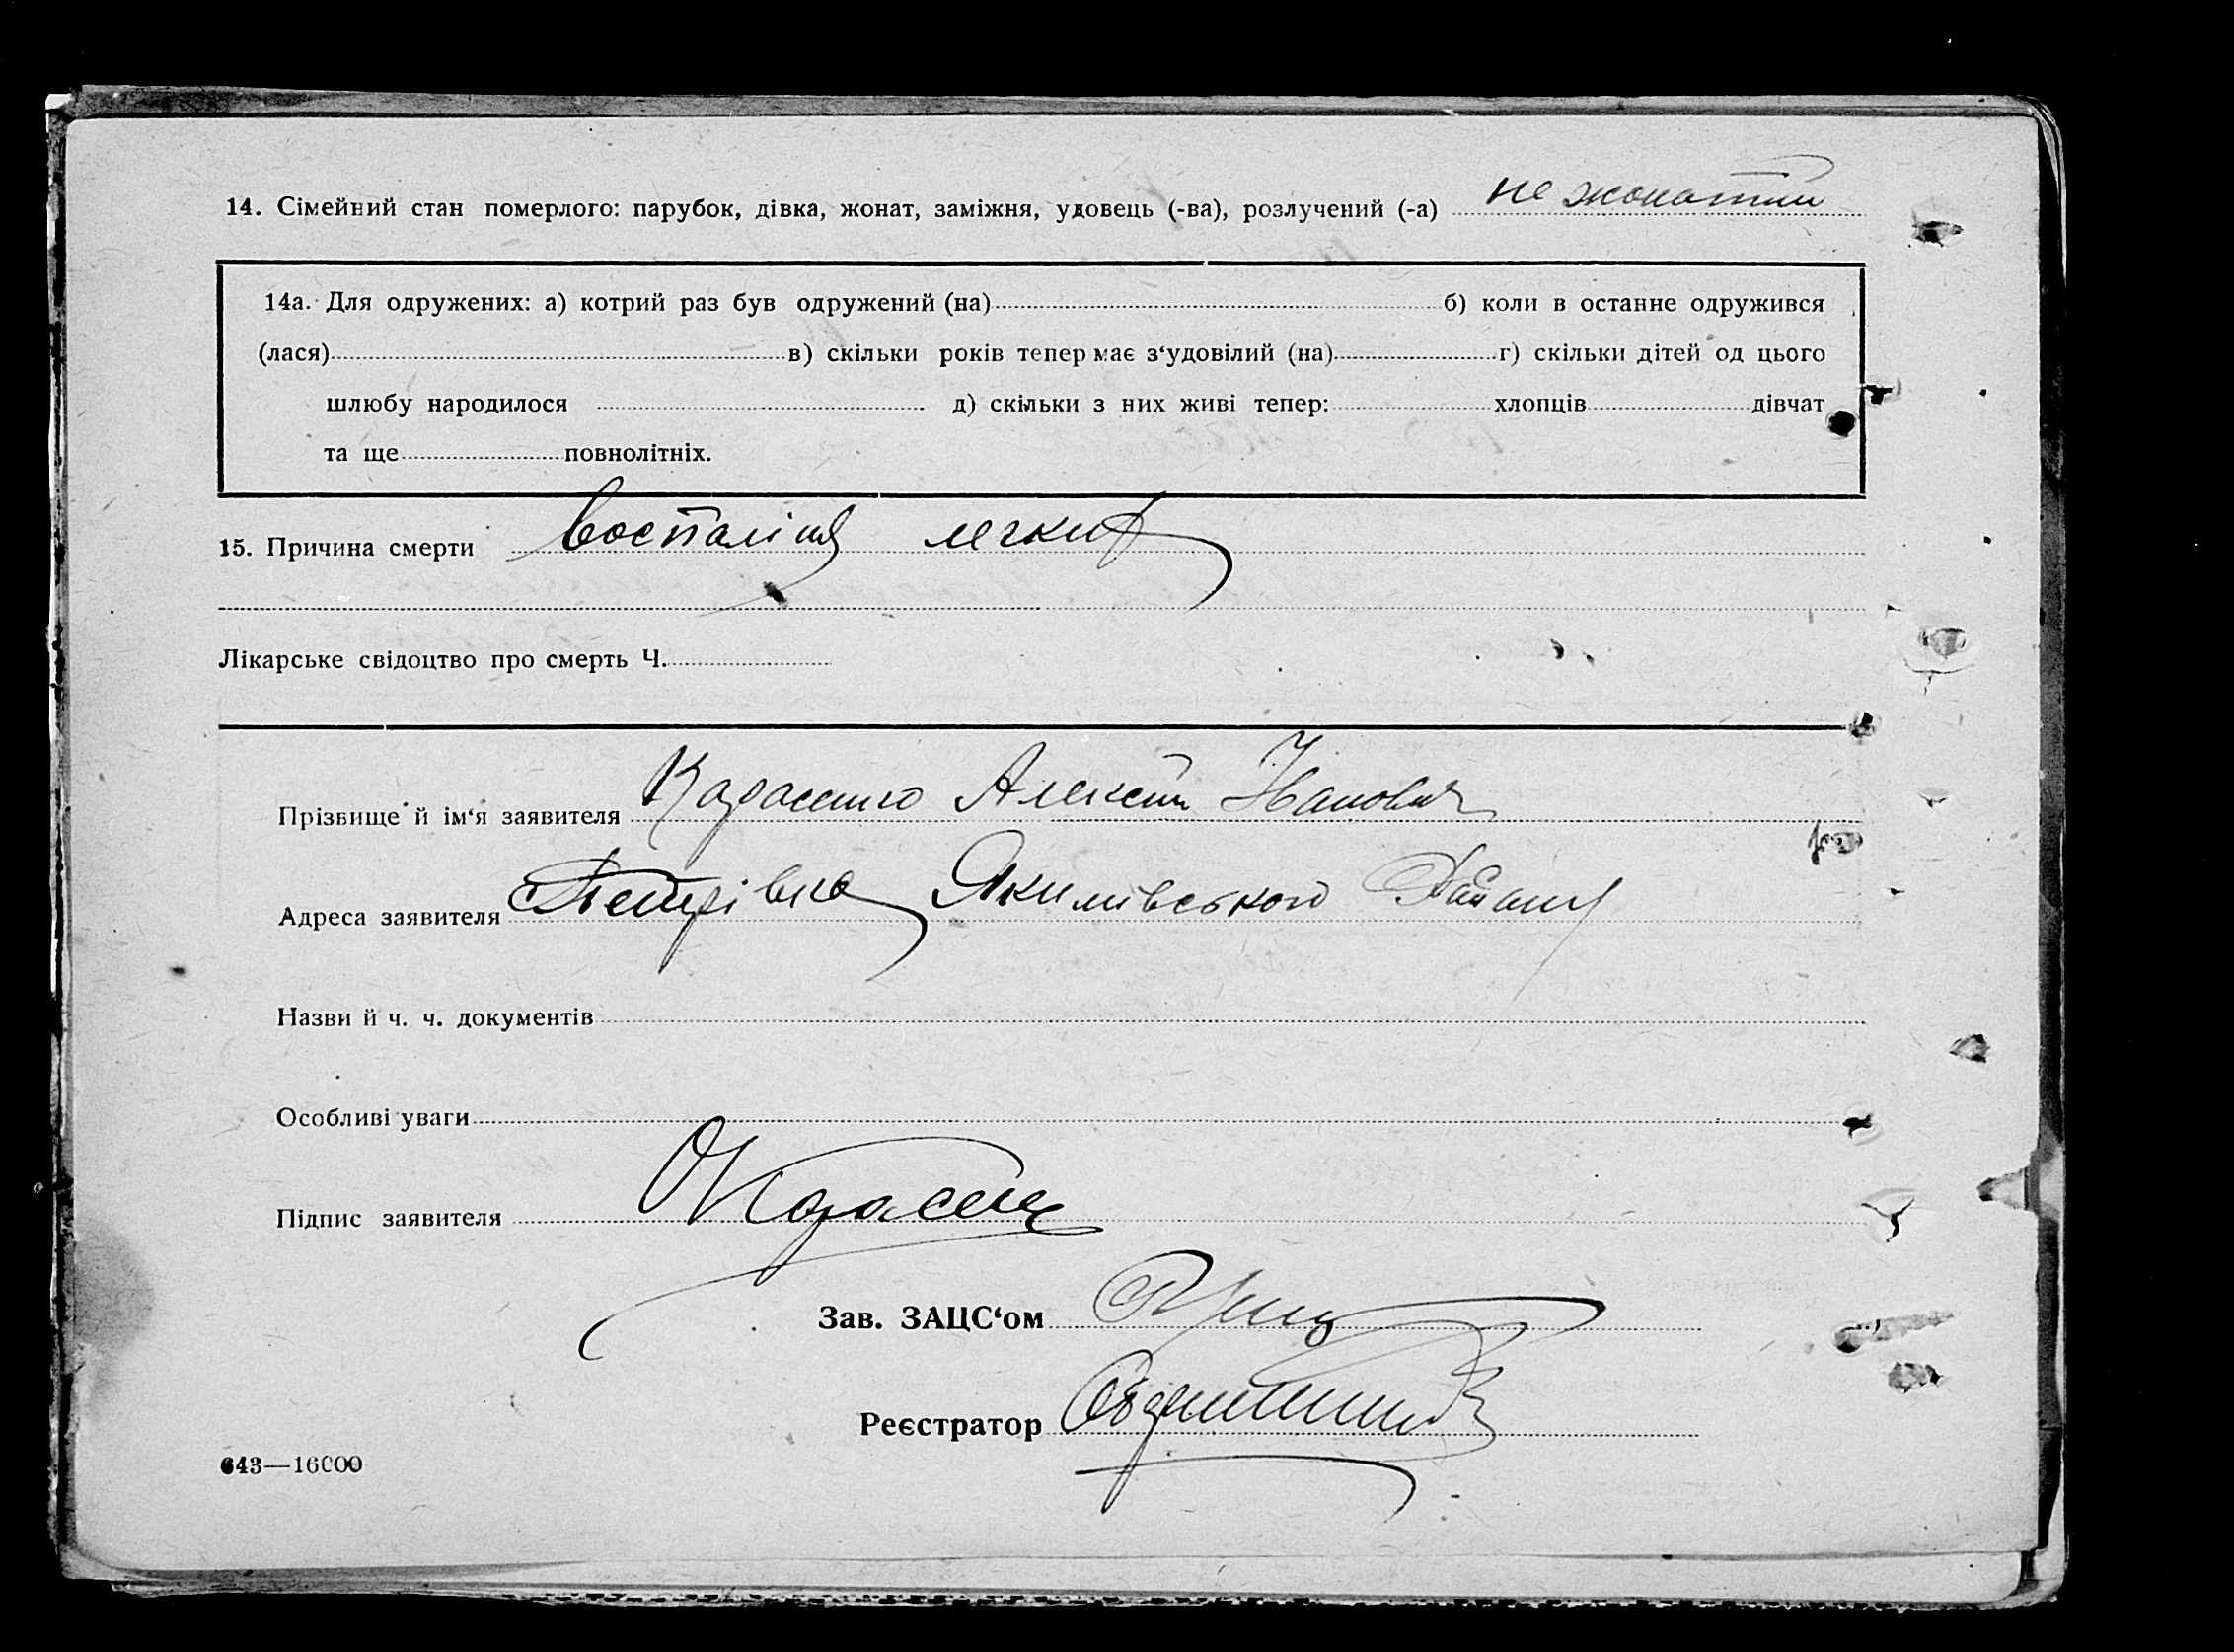 14. Сімейний стан померлого: парубок, дівка, жонат, заміжня, удовець (-ва), розлучений (-а) не жонатий
14а. Для одружених: а) котрий раз був одружений (на) б) коли в останнє одружився
(лася) в) скільки років тепер має з‘удовілий (на) г) скільки дітей од цього
шлюбу народилося д) скільки з них живі тепер: хлопців дівчат
та ще повнолітніх.
15. Причина смерти воспаління легких
Лікарське свідоцтво про смерть Ч.
Прізвище й ім‘я заявителя Алексій Іванович
Адреса заявителя Петрівка Якимівського Району
Назви й ч. ч. документів
Особливі уваги
Підпис заявителя
Зав. ЗАЦС‘ом
Реєстратор
643—16000